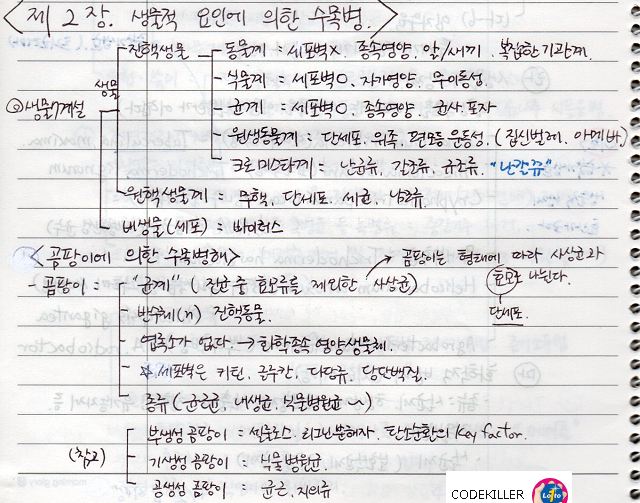 <제 2 장. 생물적 요인에 의한 수목병>
진핵생물 - 동물계 = 세포벽X. 종속영양. 알/새끼. 복잡한 기관계.
생물 - 식물계 = 세포벽O. 자가영양. 무이동성.
생물7계설 - 균계 = 세포벽O. 종속영양. 균사. 포자
원생동물계 : 단세포. 위족. 편모등 운동성. (짚신벌레. 아메바.)
크로미스타계 = 난균류, 갈조류, 규조류. "난갈규"
원핵생물계 = 무핵, 단세포. 세균. 남조류.
비생물(세포) = 바이러스
<곰팡이에 의한 수목병해> → 곰팡이는 형태에 따라 사상균과
- 곰팡이 = "균계" (진균 중 효모류를 제외한 사상균) 효모로 나뉜다.
- 반수체(n) 진핵동물. 단세포.
- 엽록소가 없다 → 화학종속 영양생물체.
- ☆ 세포벽은 키틴, 글루칸, 다당류, 당단백질.
종류 (균근균, 내생균, 식물병원균 ~)
부생성 곰팡이 = 셀룰로스. 리그닌분해자. 탄소순환의 Key factor.
(참고) - 기생성 곰팡이 = 식물병원균
공생성 곰팡이 = 균근. 지의류
CODEKILLER Lotto